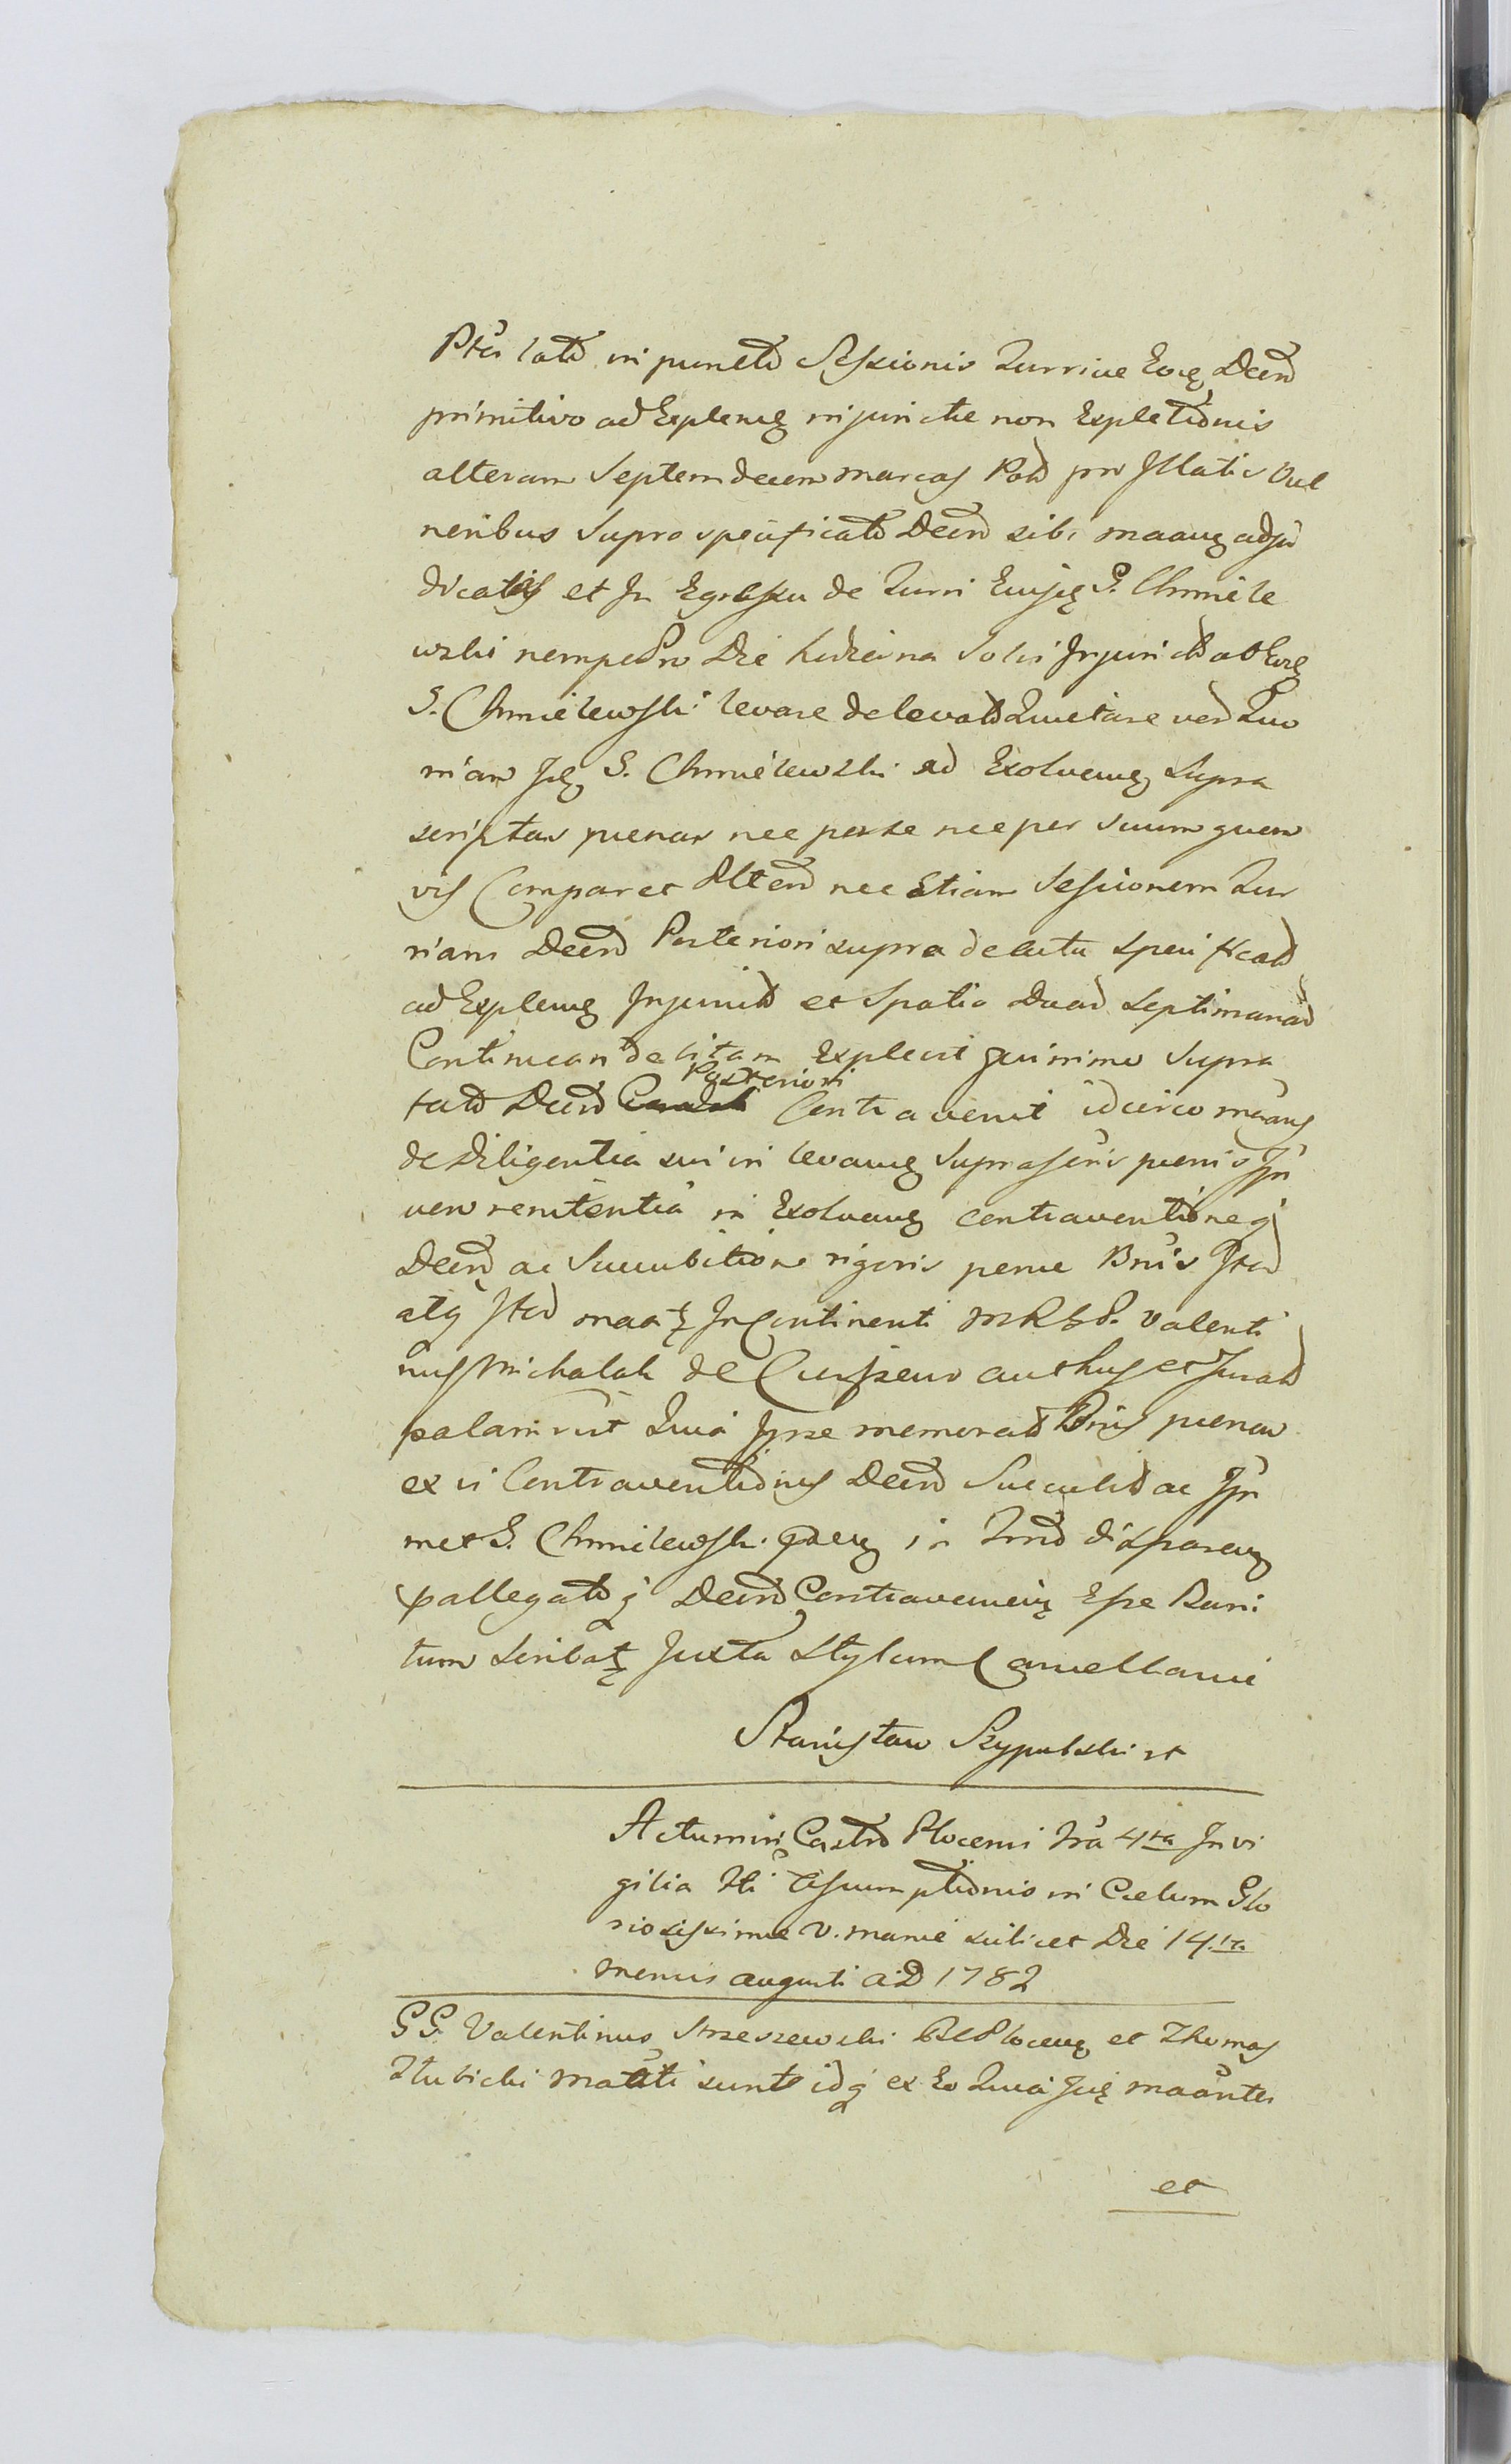 Pter latō in punctō Sessionis Turriae Eoię Decrō
primitivo ad Explenę injunctae non Expletionis
alteram Septemdecem marcas Polō pro Illatis Vul
neribus Supra specificatō Decrō sibi maanę adju
dicatas et In Egressu de Turri Eiusę G. Chmiele
wski nempe Pro Die hodierna Solvi Injunctō ab Eoę
G. Chmielewski levare de levatō Quietare verō Quo
niam Ię G. Chmielewski ad Exolvenę Supra
scriptas paenas nec per se nec per suum quem
vis Comparet Altenō nec Etiam Sessionem Tur
riam Decrō Posteriori supra de actu specificatō
ad Explenę Injunctō et Spatio Duarō Septimanarō
Continuari debitam Explevit quinimo Supra
tatō Decrō Posteriori Contravenit idcirco maans
de Diligentia sui in levanę Suprascris paenis Ipn
vero renitentia in Exolvenę contraventioneq
Decrō ac Succubitione rigoris penae Bnis Iterō
atq Iterō maatę In Continenti MRGP. Valenti
nus Michalak de Ciexzewo authus et Juratō
palam rūt Quia Ipse memoratō Bnis paenam
ex vi Contraventionis Decrō Succubtō ac Ipn
met G. Chmielewski qaeę in Tmō disparenę
pallegatōq Decrō Contravenienę Esse Bani
tum scribatę Juxta Stylum Cancellariae
Stanisław Szypulski rt
Actum in Castrō Plocensi Fra 4ta In vi
gilia Fti Assumptionis in Caelum Glo
riosissimae V. Mariae scilicet Die 14ta
mensis augusti AD 1782
GG. Valentinus Strzeszewski BC Plocenę et Thomas
Złubicki maatti sunt idq ex Eo Quia Iię maantes
et